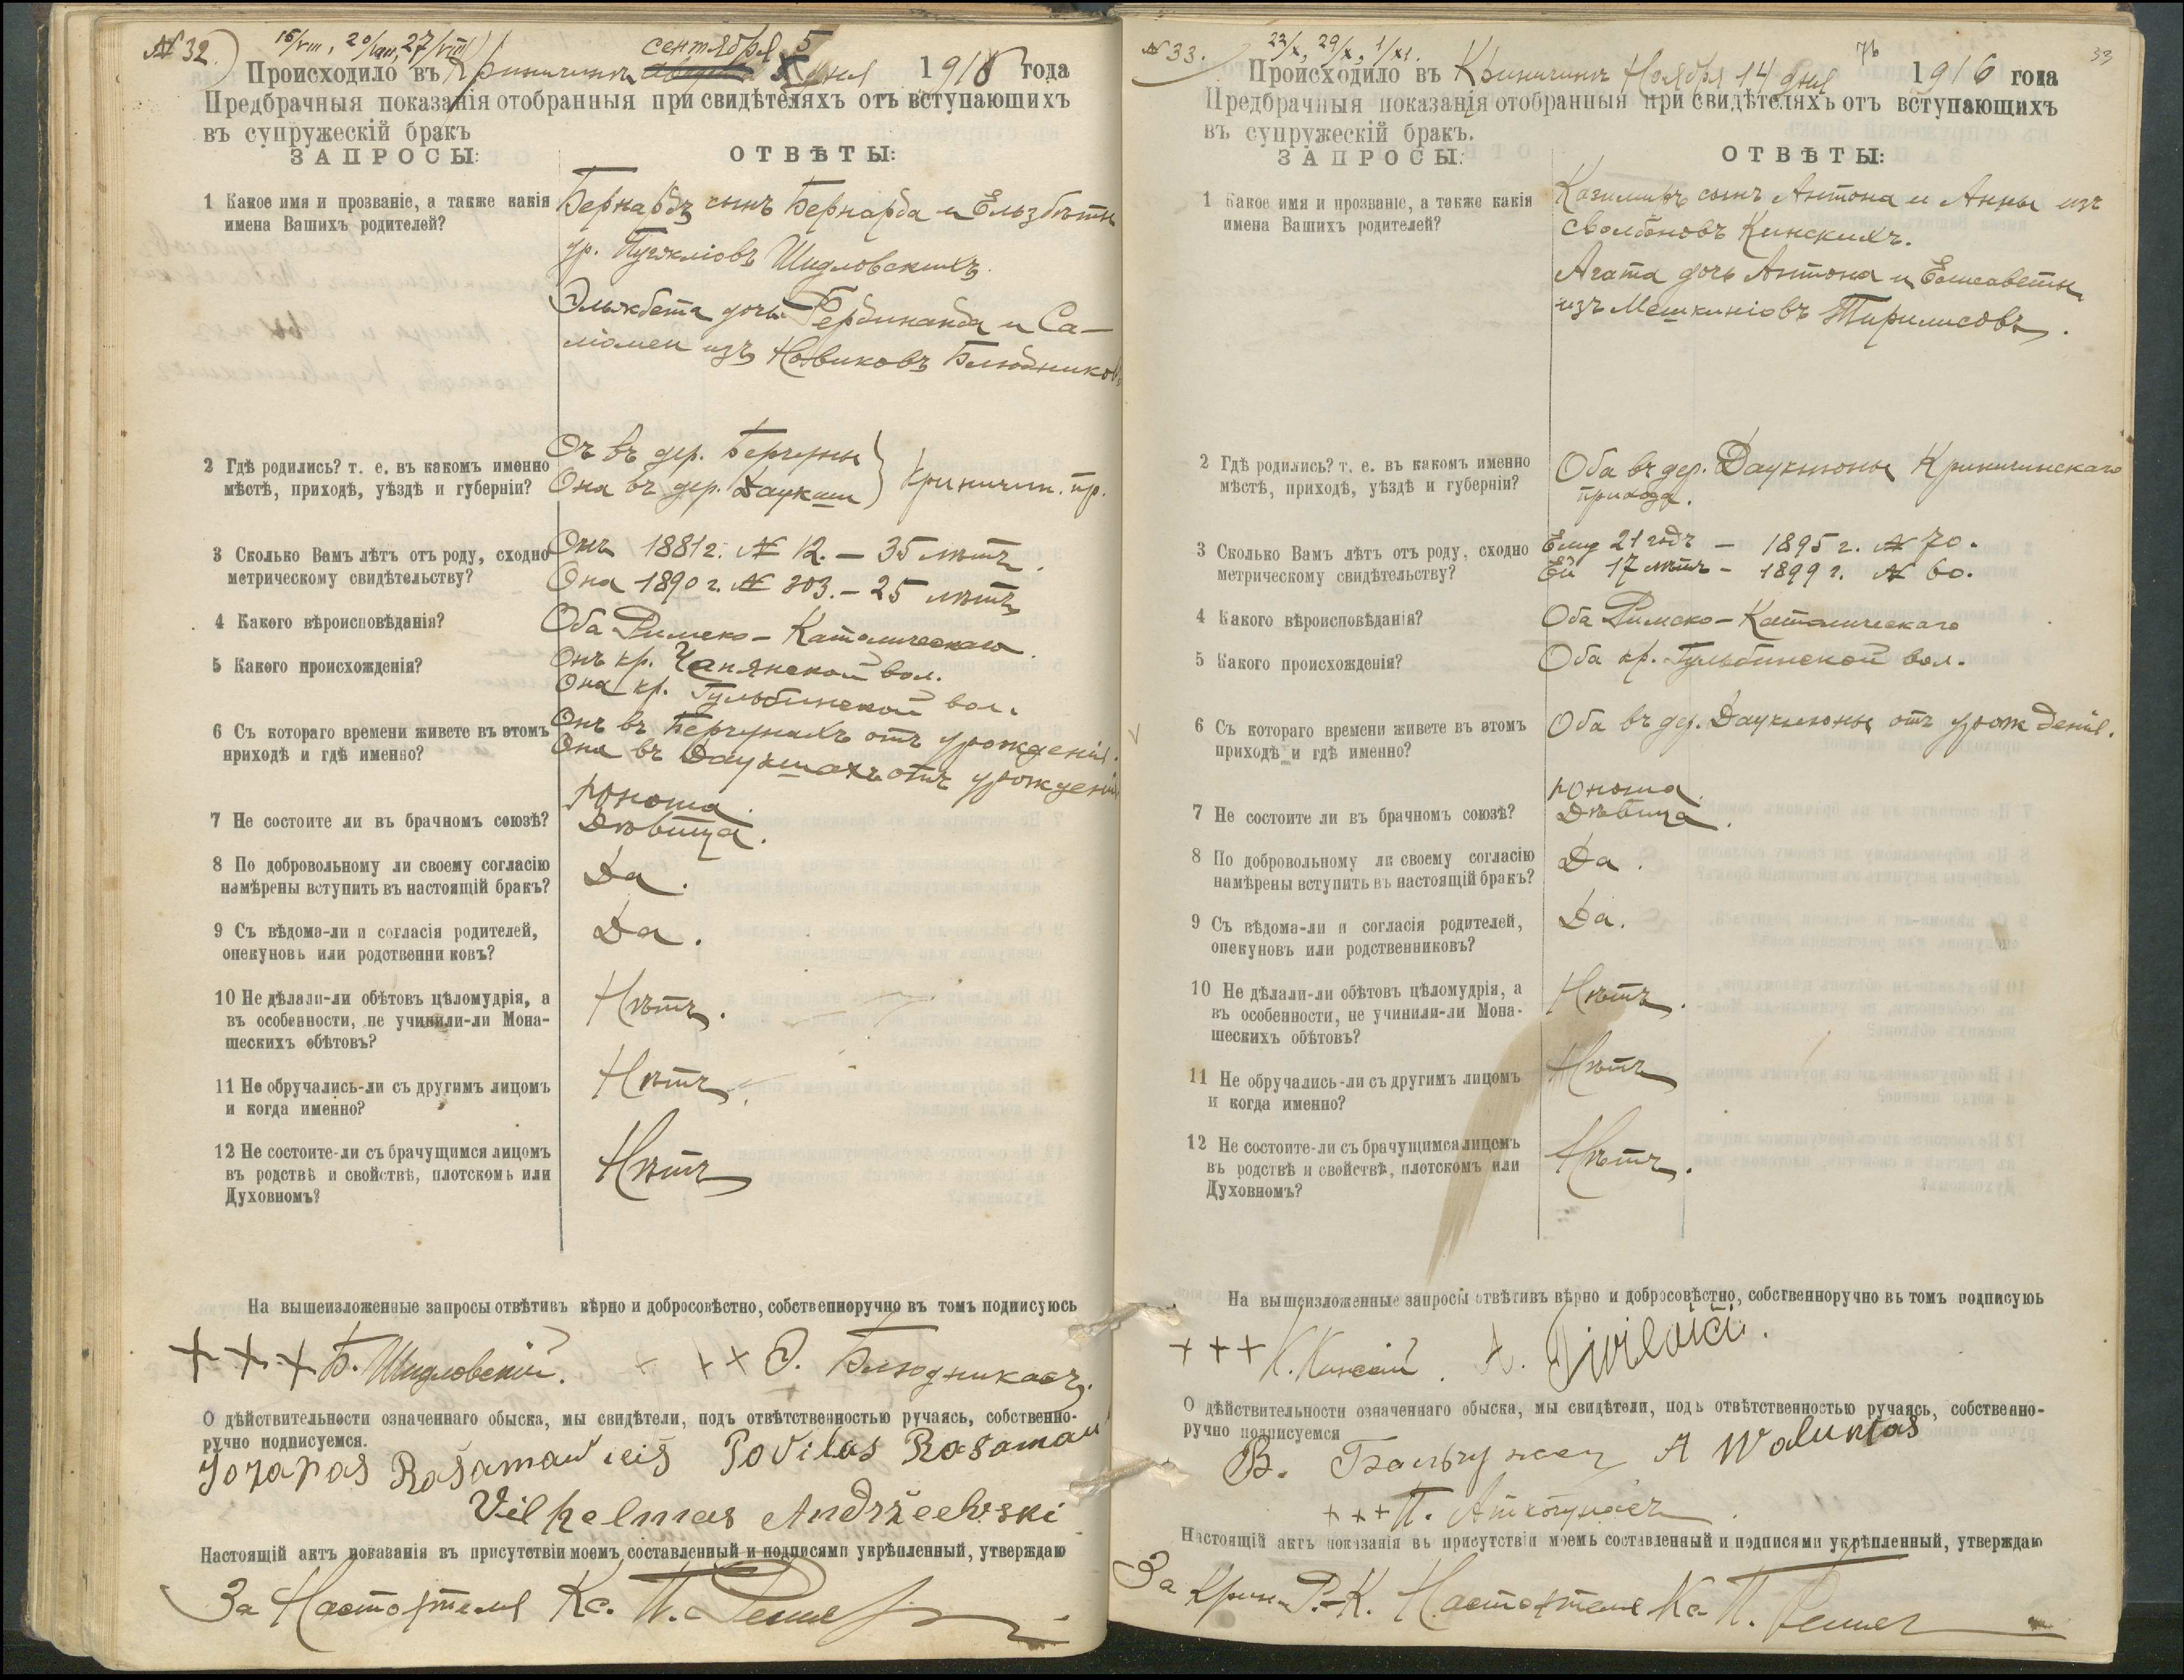 № 32.
16/VIII, 20/VIII, 27/VIII
сентября 5
Происходило въ Криничинъ дня 1916 года
Предбрачныя показанія отобранныя при свидѣтеляхъ отъ вступающихъ
въ супружескій бракъ
ЗАПРОСЫ: ОТВѢТЫ:
1 Какое имя и прозваніе, а также какія
имена Вашихъ родителей?
Бернардъ сынъ Бернарда и Ельзбеты
Шидловскихъ.
Эльжбета дочь Фердинанда и Са-
ліомеи изъ Новиковъ Блюдниковъ
2 Гдѣ родились? т. е. въ какомъ именно
мѣстѣ, приходѣ, уѣздѣ и губерніи?
Онъ въ дер. Берчуны
Она въ дер. Даукши } Криничин. пр.
3 Сколько Вамъ лѣтъ отъ роду, сходно
метрическому свидѣтельству?
Онъ 1881 г. № 12. – 35 лѣтъ.
Она 1890 г. № 203. – 25 лѣтъ
4 Какого вѣроисповѣданія?
Оба Римско-Католическаго.
5 Какого происхожденія?
Онъ кр. Чапянской вол.
Она кр. Гульбинской вол.
6 Съ котораго времени живете въ этомъ
приходѣ и гдѣ именно?
Онъ въ Берчунахъ отъ урожденія.
Она въ Даукшахъ отъ урожденія
7 Не состоите ли въ брачномъ союзѣ?
Юноша.
Дѣвица.
8 По добровольному ли своему согласію
намѣрены вступить въ настоящій бракъ?
Да.
9 Съ вѣдома-ли и согласія родителей,
опекуновъ или родственни ковъ?
Да.
10 Не дѣлали-ли обѣтовъ цѣломудрія, а
въ особенности, не учинили-ли Мона-
шескихъ обѣтовъ?
Нѣтъ.
11 Не обручались-ли съ другимъ лицомъ
и когда именно?
Нѣтъ.
12 Не состоите-ли съ брачущимся лицомъ
въ родствѣ и свойствѣ, плотскомъ или
Духовномъ?
Нѣтъ
На вышеизложенные запросы отвѣтивъ вѣрно и добросовѣстно, собственноручно въ томъ подписуюсь
+ + + Б. Шидловскій. + + + Э. Блюдникасъ.
О дѣйствительности означеннаго обыска, мы свидѣтели, подъ отвѣтственностью ручаясь, собственно-
ручно подписуемся.
Jozapas Rašamavičeiš Povilas Rasamav
Vilhelmas Andržeevski
Настоящій актъ показанія въ присутствіи моемъ составленный и подписями укрѣпленный, утверждаю
За Настоятеля Кс. П.
№ 33.
22/X, 29/X, 1/XI.
33
Происходило въ Криничинъ Ноября 14 дня 1916 года
Предбрачныя показанія отобранныя при свидѣтеляхъ отъ вступающихъ
въ супружескій бракъ.
ЗАПРОСЫ: ОТВѢТЫ:
1 Какое имя и прозваніе, а также какія
имена Вашихъ родителей?
Казимиръ сынъ Антона и Анны изъ
Сволбоновъ Кинскихъ.
Агата дочь Антона и Елисаветы
изъ Мешкиніовъ
2 Гдѣ родились? т. е. въ какомъ именно
мѣстѣ, приходѣ, уѣздѣ и губерніи?
Оба въ дер. Даукнюны Криничинскаго
прихода.
3 Сколько Вамъ лѣтъ отъ роду, сходно
метрическому свидѣтельству?
Ему 21 годъ – 1895 г. № 70.
Ей 17 лѣтъ – 1899 г. № 60.
4 Какого вѣроисповѣданія?
Оба Римско-Католическаго
5 Какого происхожденія?
Оба кр. Гульбинской вол.
6 Съ котораго времени живете въ этомъ
приходѣ и гдѣ именно?
Оба въ дер. Даукнюны отъ урожденія.
7 Не состоите ли въ брачномъ союзѣ?
Юноша.
Дѣвица.
8 По добровольному ли своему согласію
намѣрены вступить въ настоящій бракъ?
Да.
9 Съ вѣдома-ли и согласія родителей,
опекуновъ или родственниковъ?
Да.
10 Не дѣлали-ли обѣтовъ цѣломудрія, а
въ особенности, не учинили-ли Мона-
шескихъ обѣтовъ?
Нѣтъ.
11 Не обручались-ли съ другимъ лицомъ
и когда именно?
Нѣтъ
12 Не состоите-ли съ брачущимся лицомъ
въ родствѣ и свойствѣ, плотскомъ или
Духовномъ?
Нѣтъ.
На вышеизложенные запросы отвѣтивъ вѣрно и добросовѣстно, собственноручно въ томъ подписуюь
+ + + К. Кинскій. A.
О дѣйствительности означеннаго обыска, мы свидѣтели, подъ отвѣтственностью ручаясь, собственно-
ручно подписуемся
В. A Waluntas
+ + + П.
Настоящій актъ показанія въ присутствіи моемъ составленный и подписями укрѣпленный, утверждаю
За Крин. Р.-К. Настоятеля Кс П.